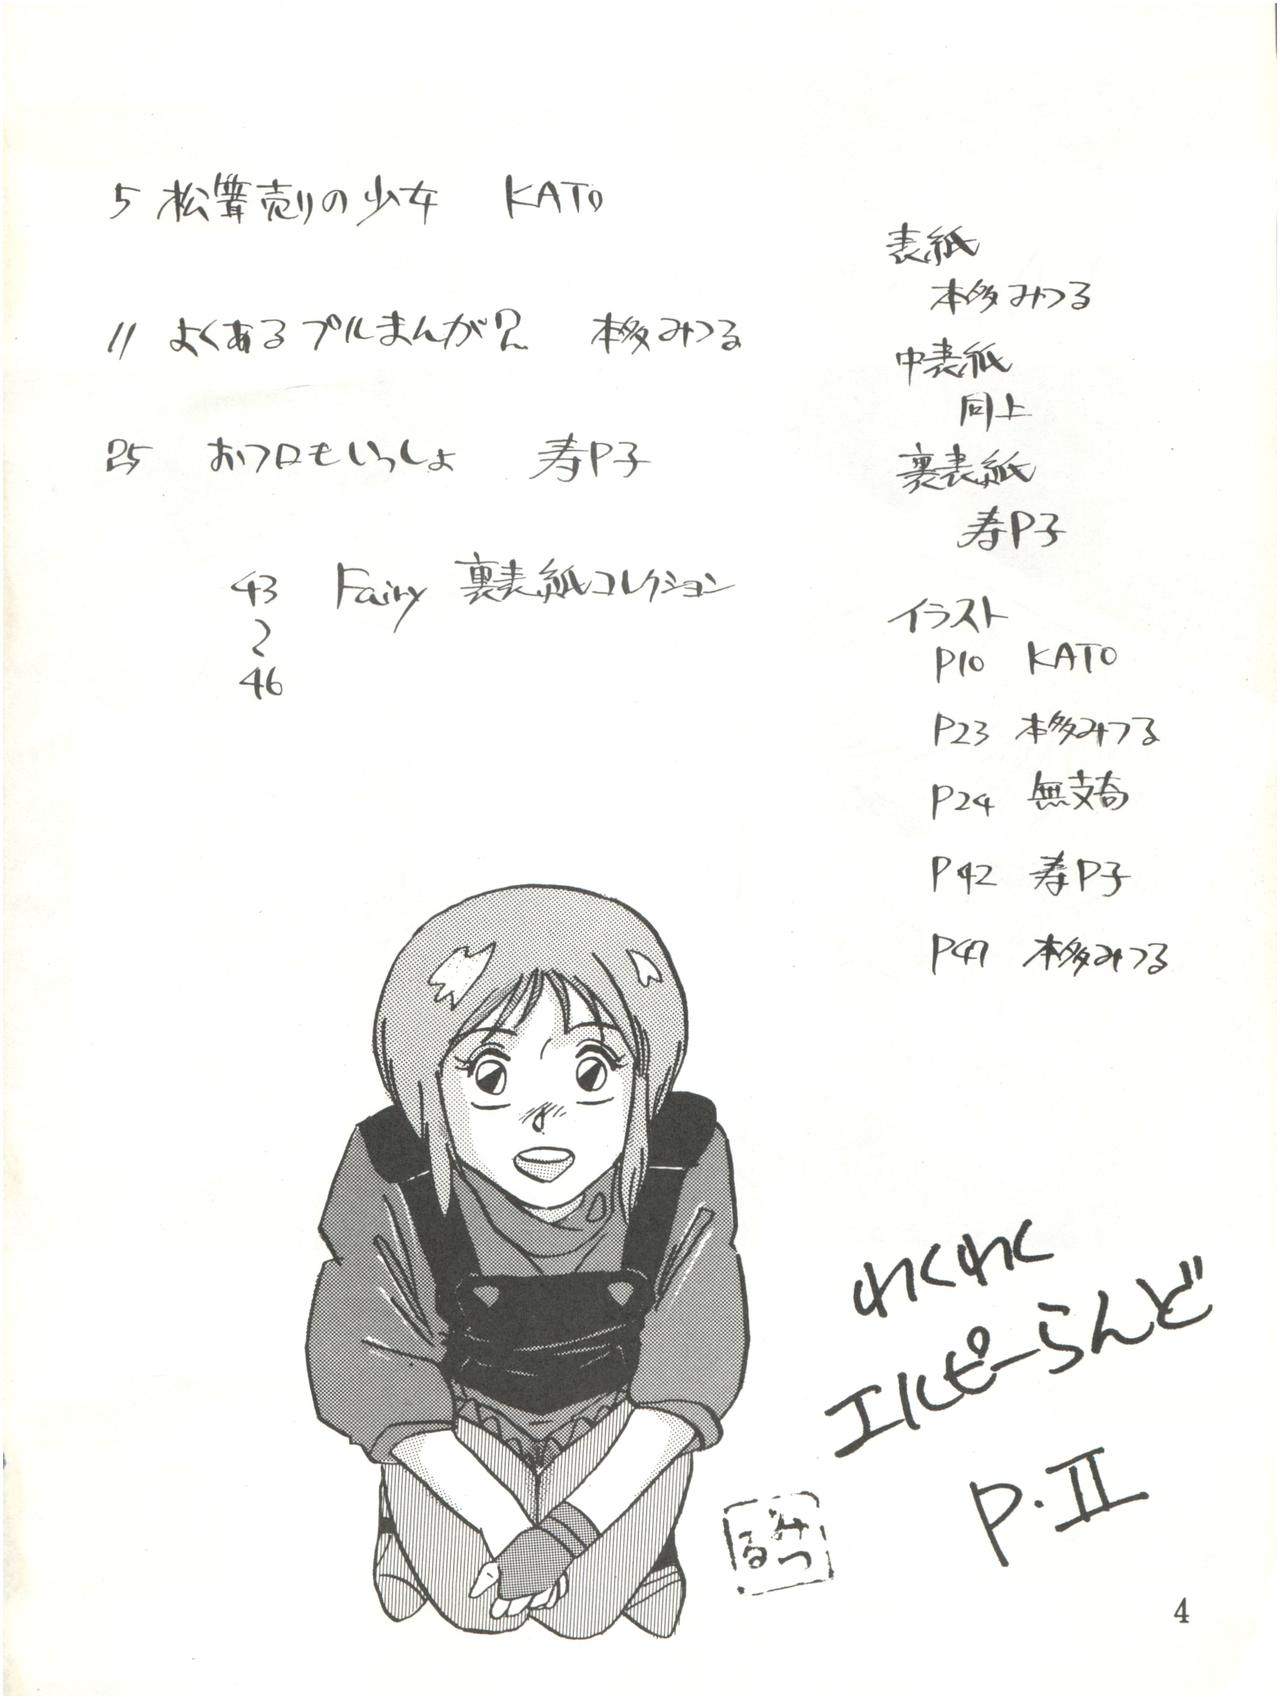 5 松茸売りの少女 KATO
11 よくあるプルまんが? 本多みつる
25 おフロもいっしょ 寿P子
43〜46 Fairy 裏表紙コレクション
表紙
本多みつる
中表紙
同上
裏表紙
寿P子
イラスト
P10 KATO
P23 本多みつる
P24 無支奇
P42 寿P子
P47 本多みつる
わくわく
エルピーらんど
P.II
みつる
4